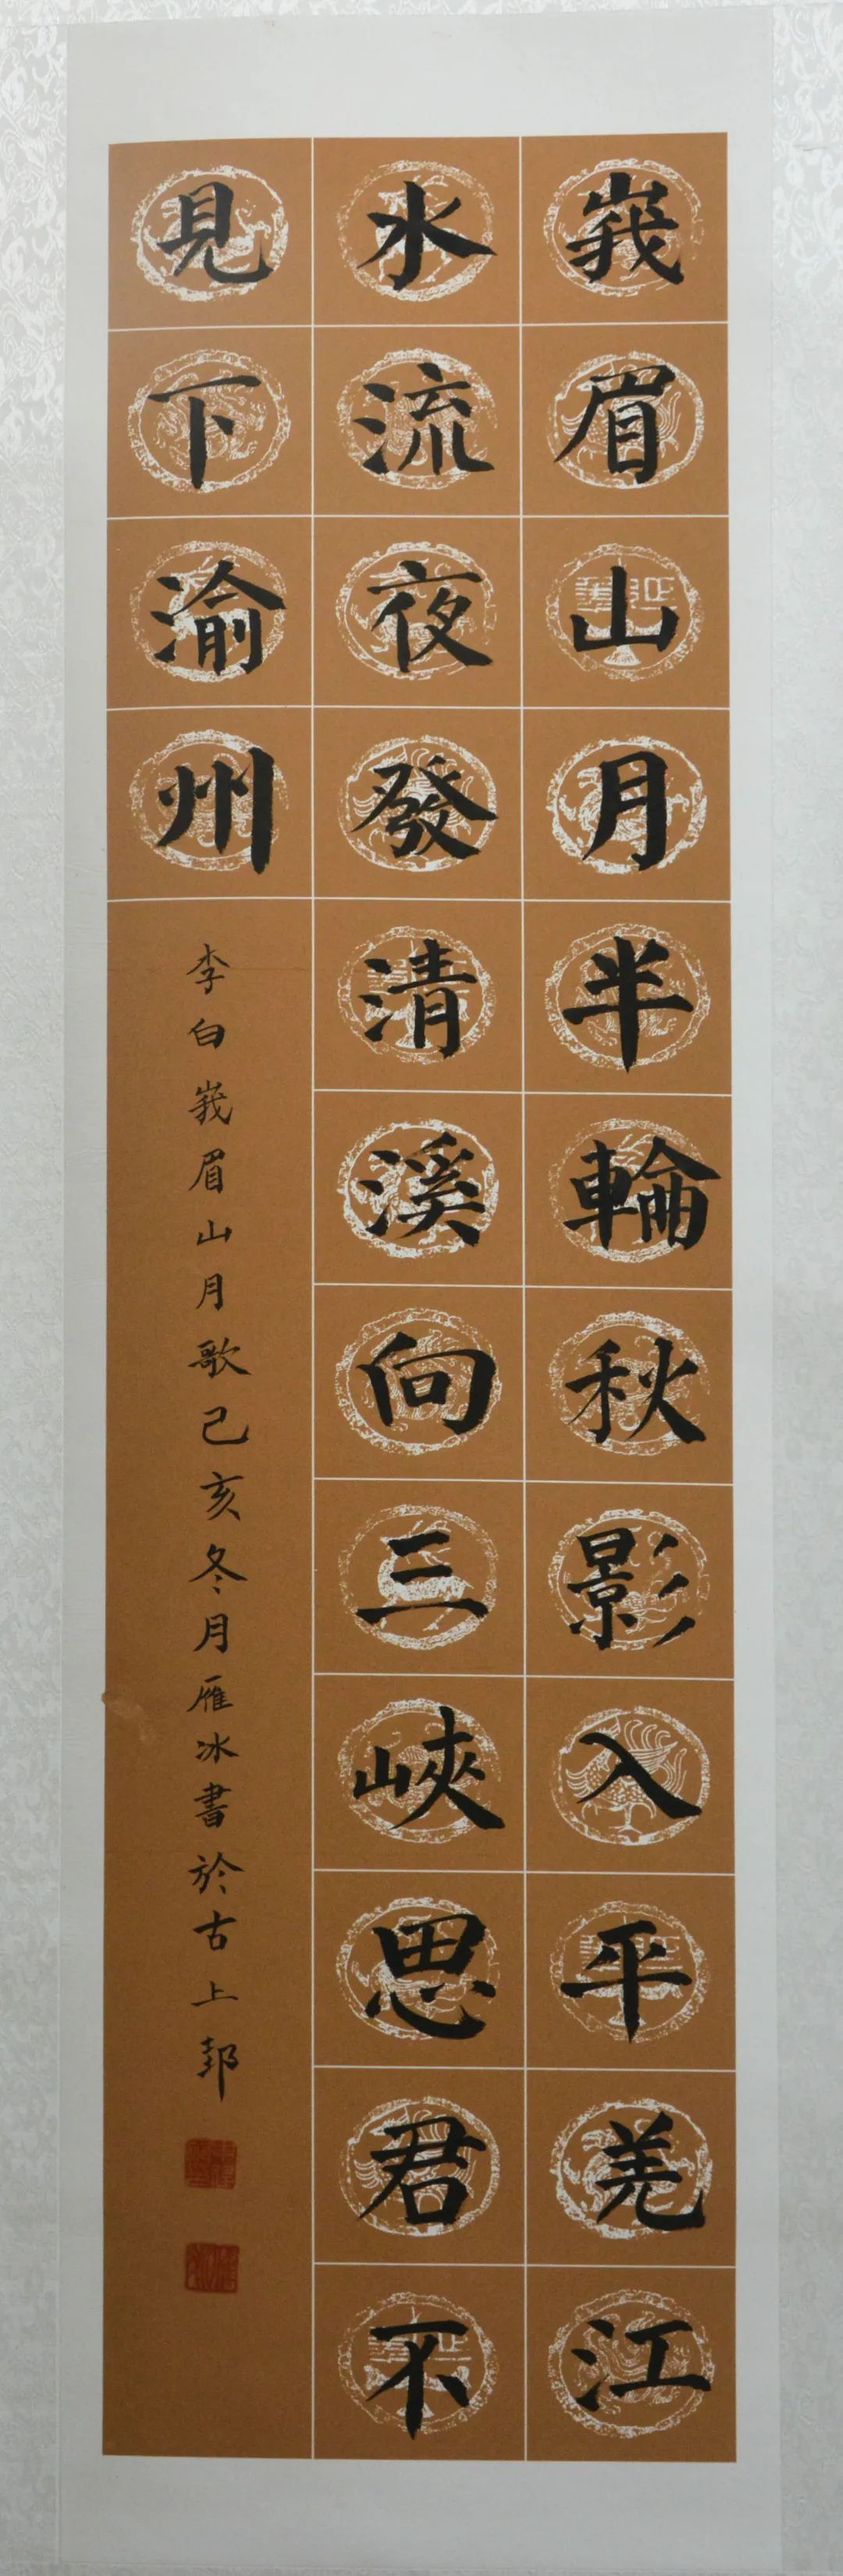 峩眉山月半輪秋影入平羌江
水流夜發清溪向三峽思君不
見下渝州
李白峩眉山月歌己亥冬月雁冰書於古上邽